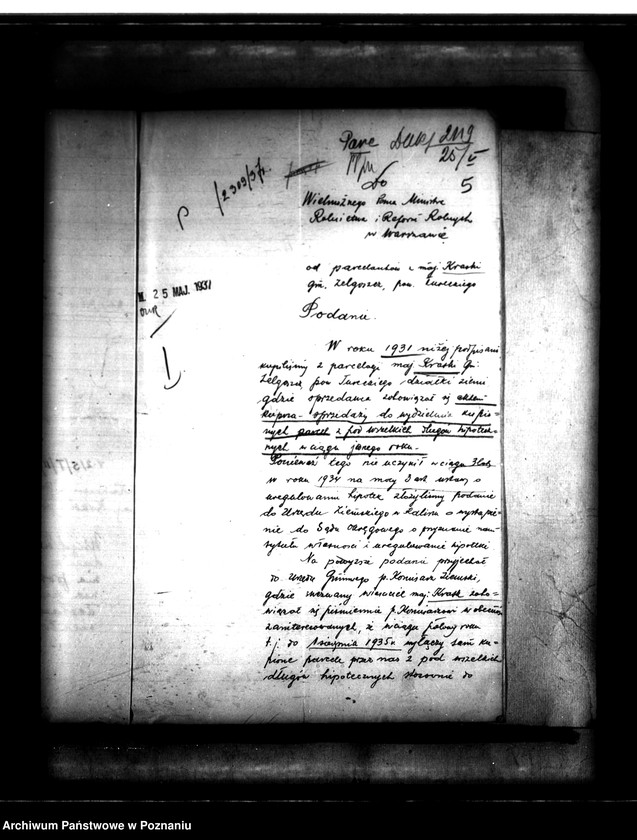 Parc
25/V
5
P /2303/37.
Do
Wielmożnego Pana Ministra
Rolnictwa i Reform Rolnych
w Warszawie
25 MAJ. 1937
od parcelantów z maj. Kraski
gm. Zelgoszcz, pow. Tureckiego
Podanie.
W roku 1931 niżej podpisani
kupiliśmy z parcelacji maj Kraski gm.
Zelgoszcz, pow Tureckiego działki ziemi
gdzie sprzedawca zobowiązał się aktem
kupna-sprzedaży do wydzielenia kupio=
nych parcel z pod wszelkich długów hipotecz=
nych w ciągu jednego roku.
Ponieważ tego nie uczynił w ciągu 3 lat
w roku 1934 na mocy art. ustawy o
uregulowaniu hipotek złożyliśmy podanie
do Urzędu Ziemskiego w Kaliszu o wystąpie=
nie do Sądu Okręgowego o przyznanie nam
tytułu własności i uregulowanie hipoteki
Na powyższe podanie przyjechał
do Urzędu Gminnego p. Komisarz Ziemski,
gdzie wezwany właściciel maj: Kraski zobo=
wiązał się piśmiennie p. Komisarzowi w obecności
zainteresowanych, że w ciągu półtora roku
t.j. do 1 sierpnia 1935r. wyłączy sam ku=
pione parcele przez nas z pod wszelkich
długów hipotecznych stosownie do
Archiwum Państwowe w Poznaniu